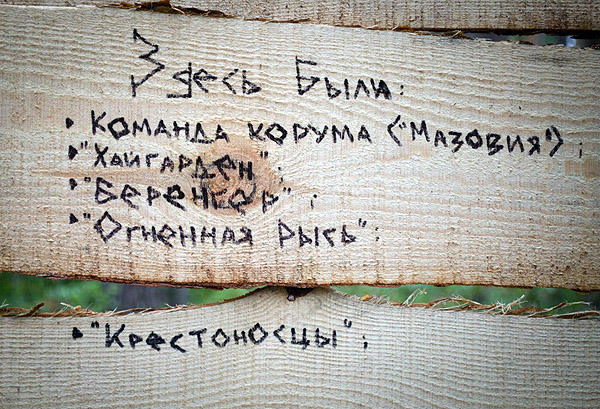 Здесь Были:
Команда корума ("Мазовия");
"Хайгарден";
"Беренгор";
"Огненная рысь";
"Крестоносцы";